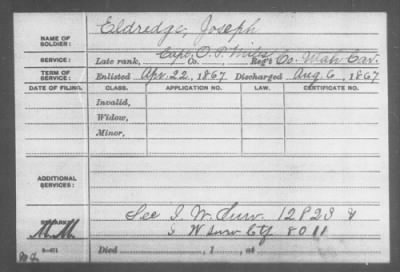 Eldredge, Joseph
NAME OF
SOLDIER:
Capt. O. P. Miles
SERVICE: Late rank, Co. Reg't Co. Utah Cav.
TERM OF
SERVICE: Enlisted Apr. 22, 1867 Discharged Aug. 6, 1867
DATE OF FILING. CLASS. APPLICATION NO. LAW. CERTIFICATE NO.
Invalid,
Widow,
Minor,
ADDITIONAL
SERVICES:
See I. W. Surv. 12823 &
REMARKS: I W Surv Ctf 8011
Died , 1 , at